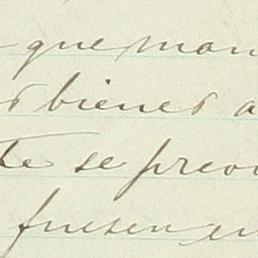 que man
bienes a
te se preo
fuesen en